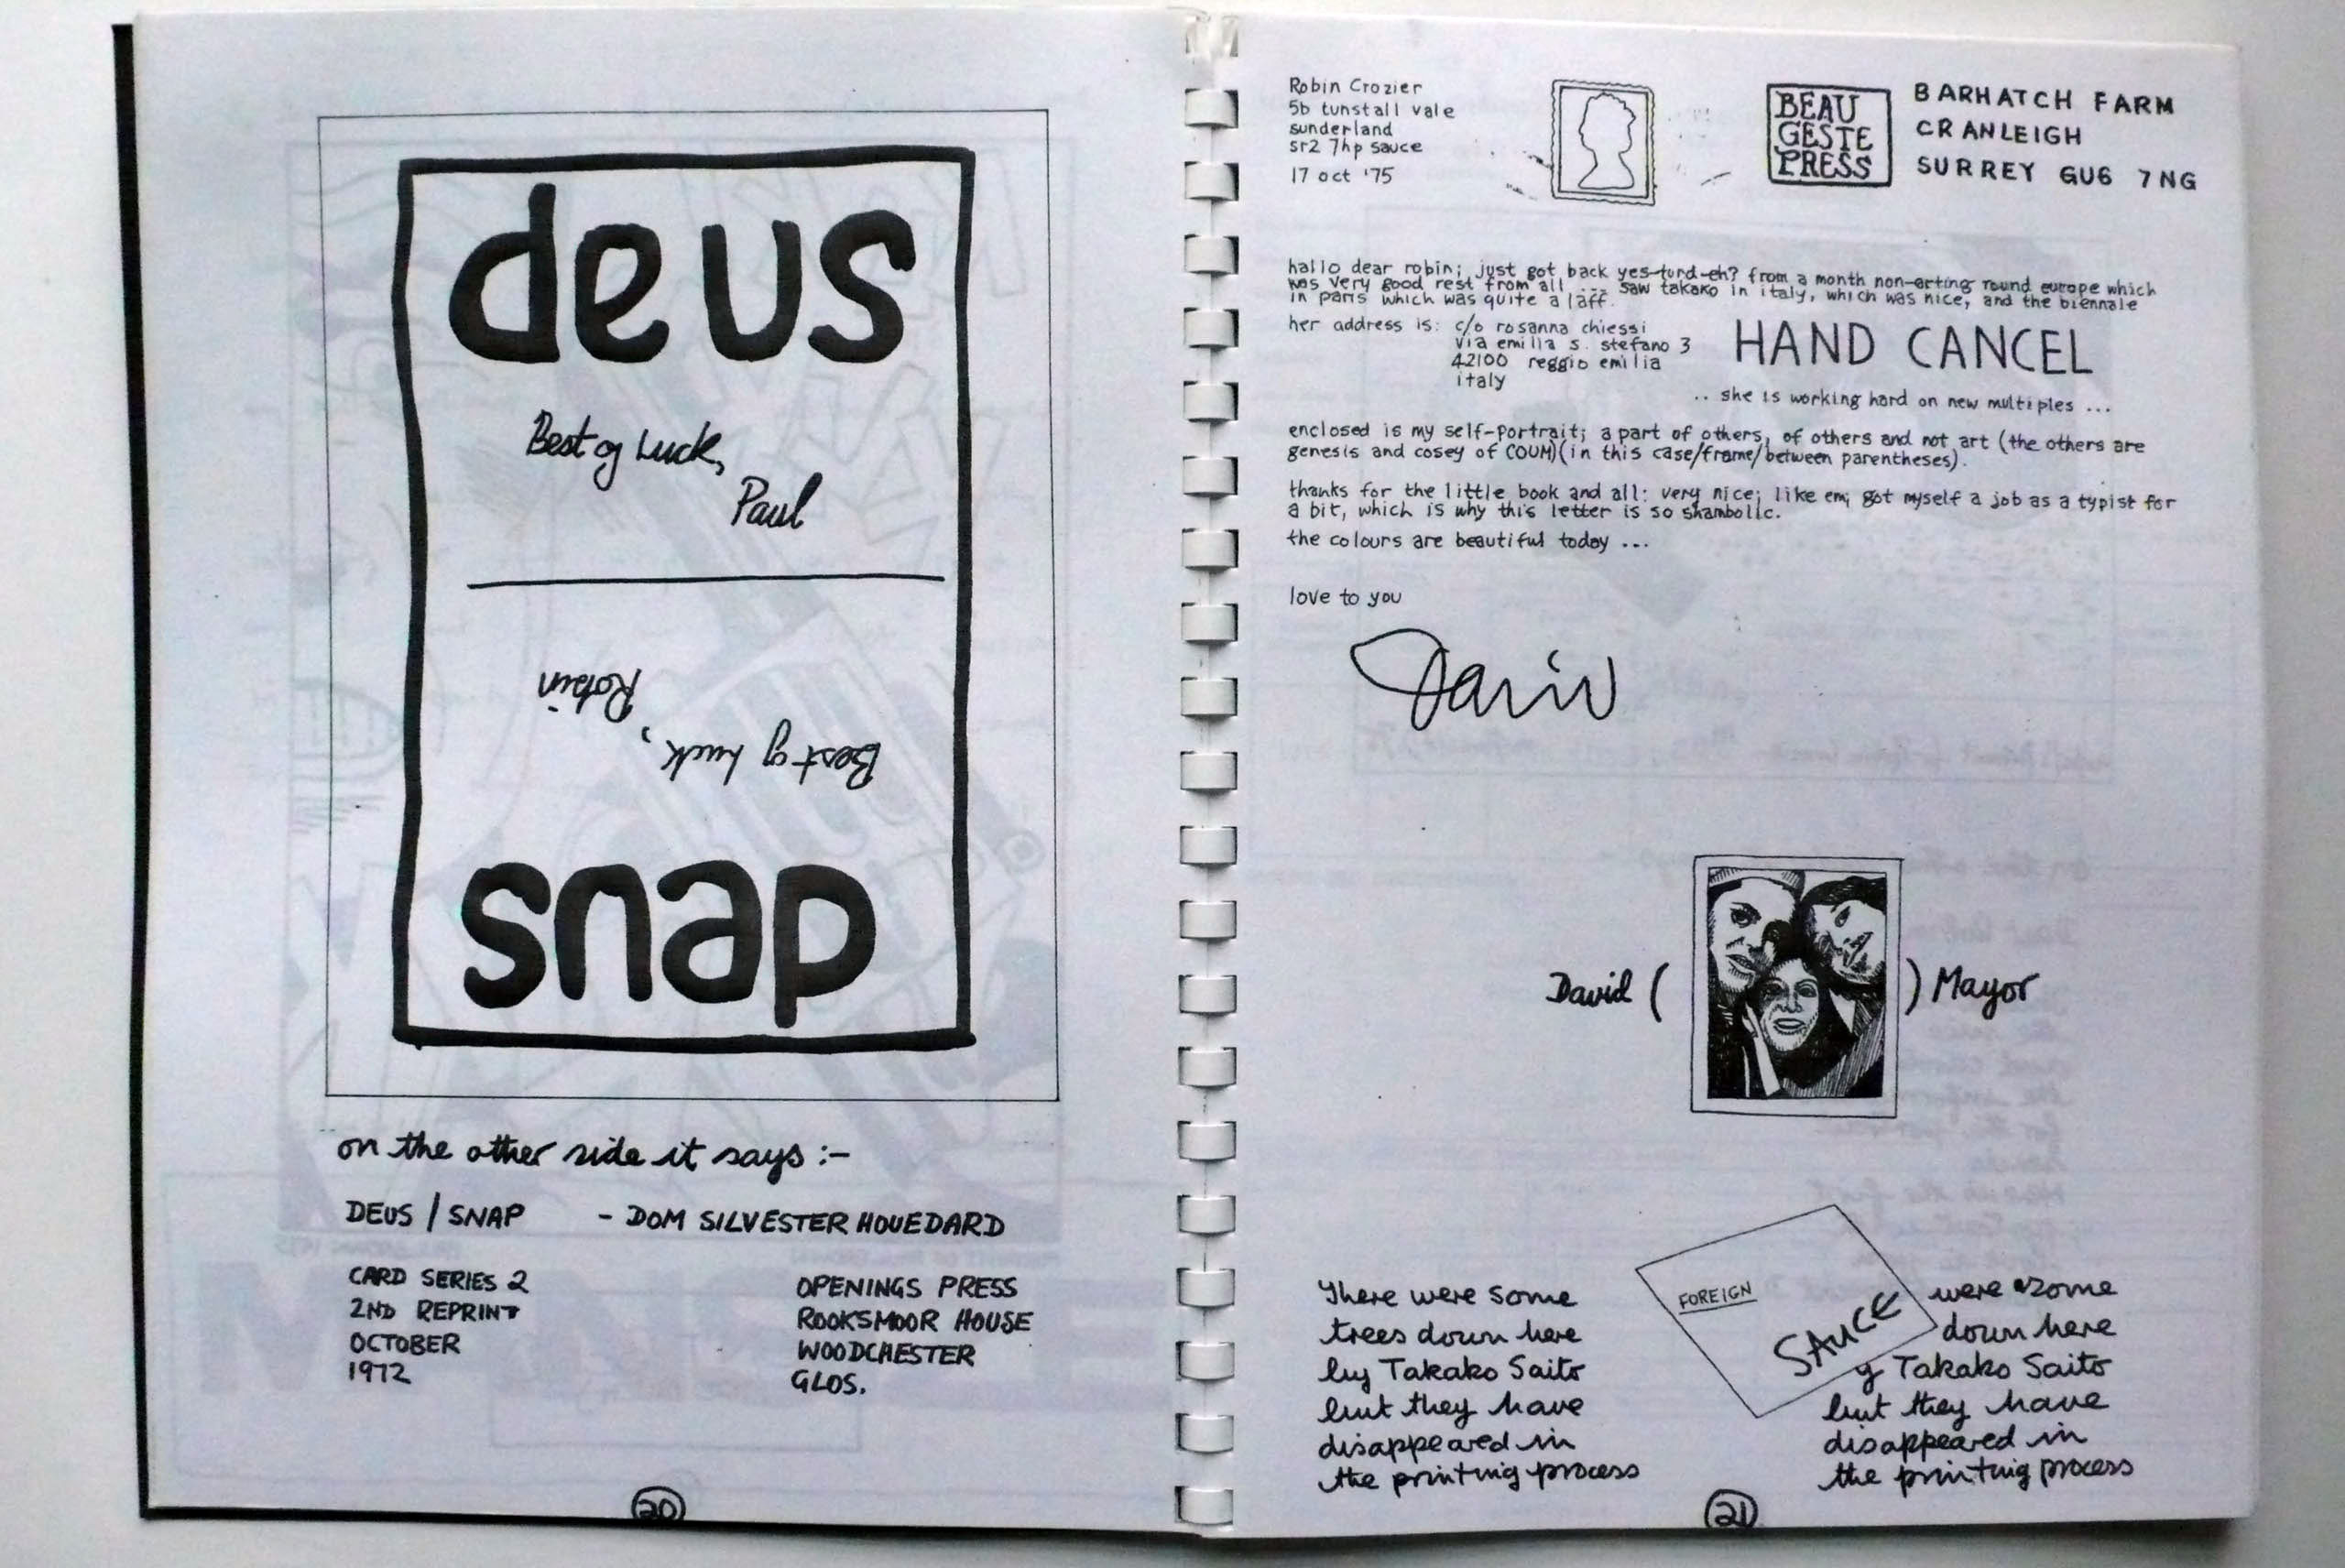 deus
Best of Luck,
Paul
Best of Luck,
Robin
snap
on the other side it says :-
DEUS / SNAP - DOM SILVESTER HOUEDARD
CARD SERIES 2
2ND REPRINT
OCTOBER
1972
OPENINGS PRESS
ROOKSMOOR HOUSE
WOODCHESTER
GLOS.
20
Robin Crozier
5b tunstall vale
sunderland
sr2 7hp sauce
17 oct '75
BEAU
GESTE
PRESS
BARHATCH FARM
CRANLEIGH
SURREY GU6 7NG
hallo dear robin; just got back yes-turd-eh? from a month non-arting round europe which
was very good rest from all .... saw takako in italy, which was nice, and the biennale
in paris which was quite a laff.
her address is: c/o rosanna chiessi
via emilia s. stefano 3
42100 reggio emilia
italy
HAND CANCEL
.. she is working hard on new multiples ...
enclosed is my self-portrait; a part of others, of others and not art (the others are
genesis and cosey of COUM)(in this case/frame/between parentheses).
thanks for the little book and all: very nice; like em; got myself a job as a typist for
a bit, which is why this letter is so shambolic.
the colours are beautiful today ...
love to you
David
David ( ) Mayor
There were some
trees down here
by Takako Saito
but they have
disappeared in
the printing process
FOREIGN
SAUCE
were some
down here
y Takako Saito
but they have
disappeared in
the printing process
21